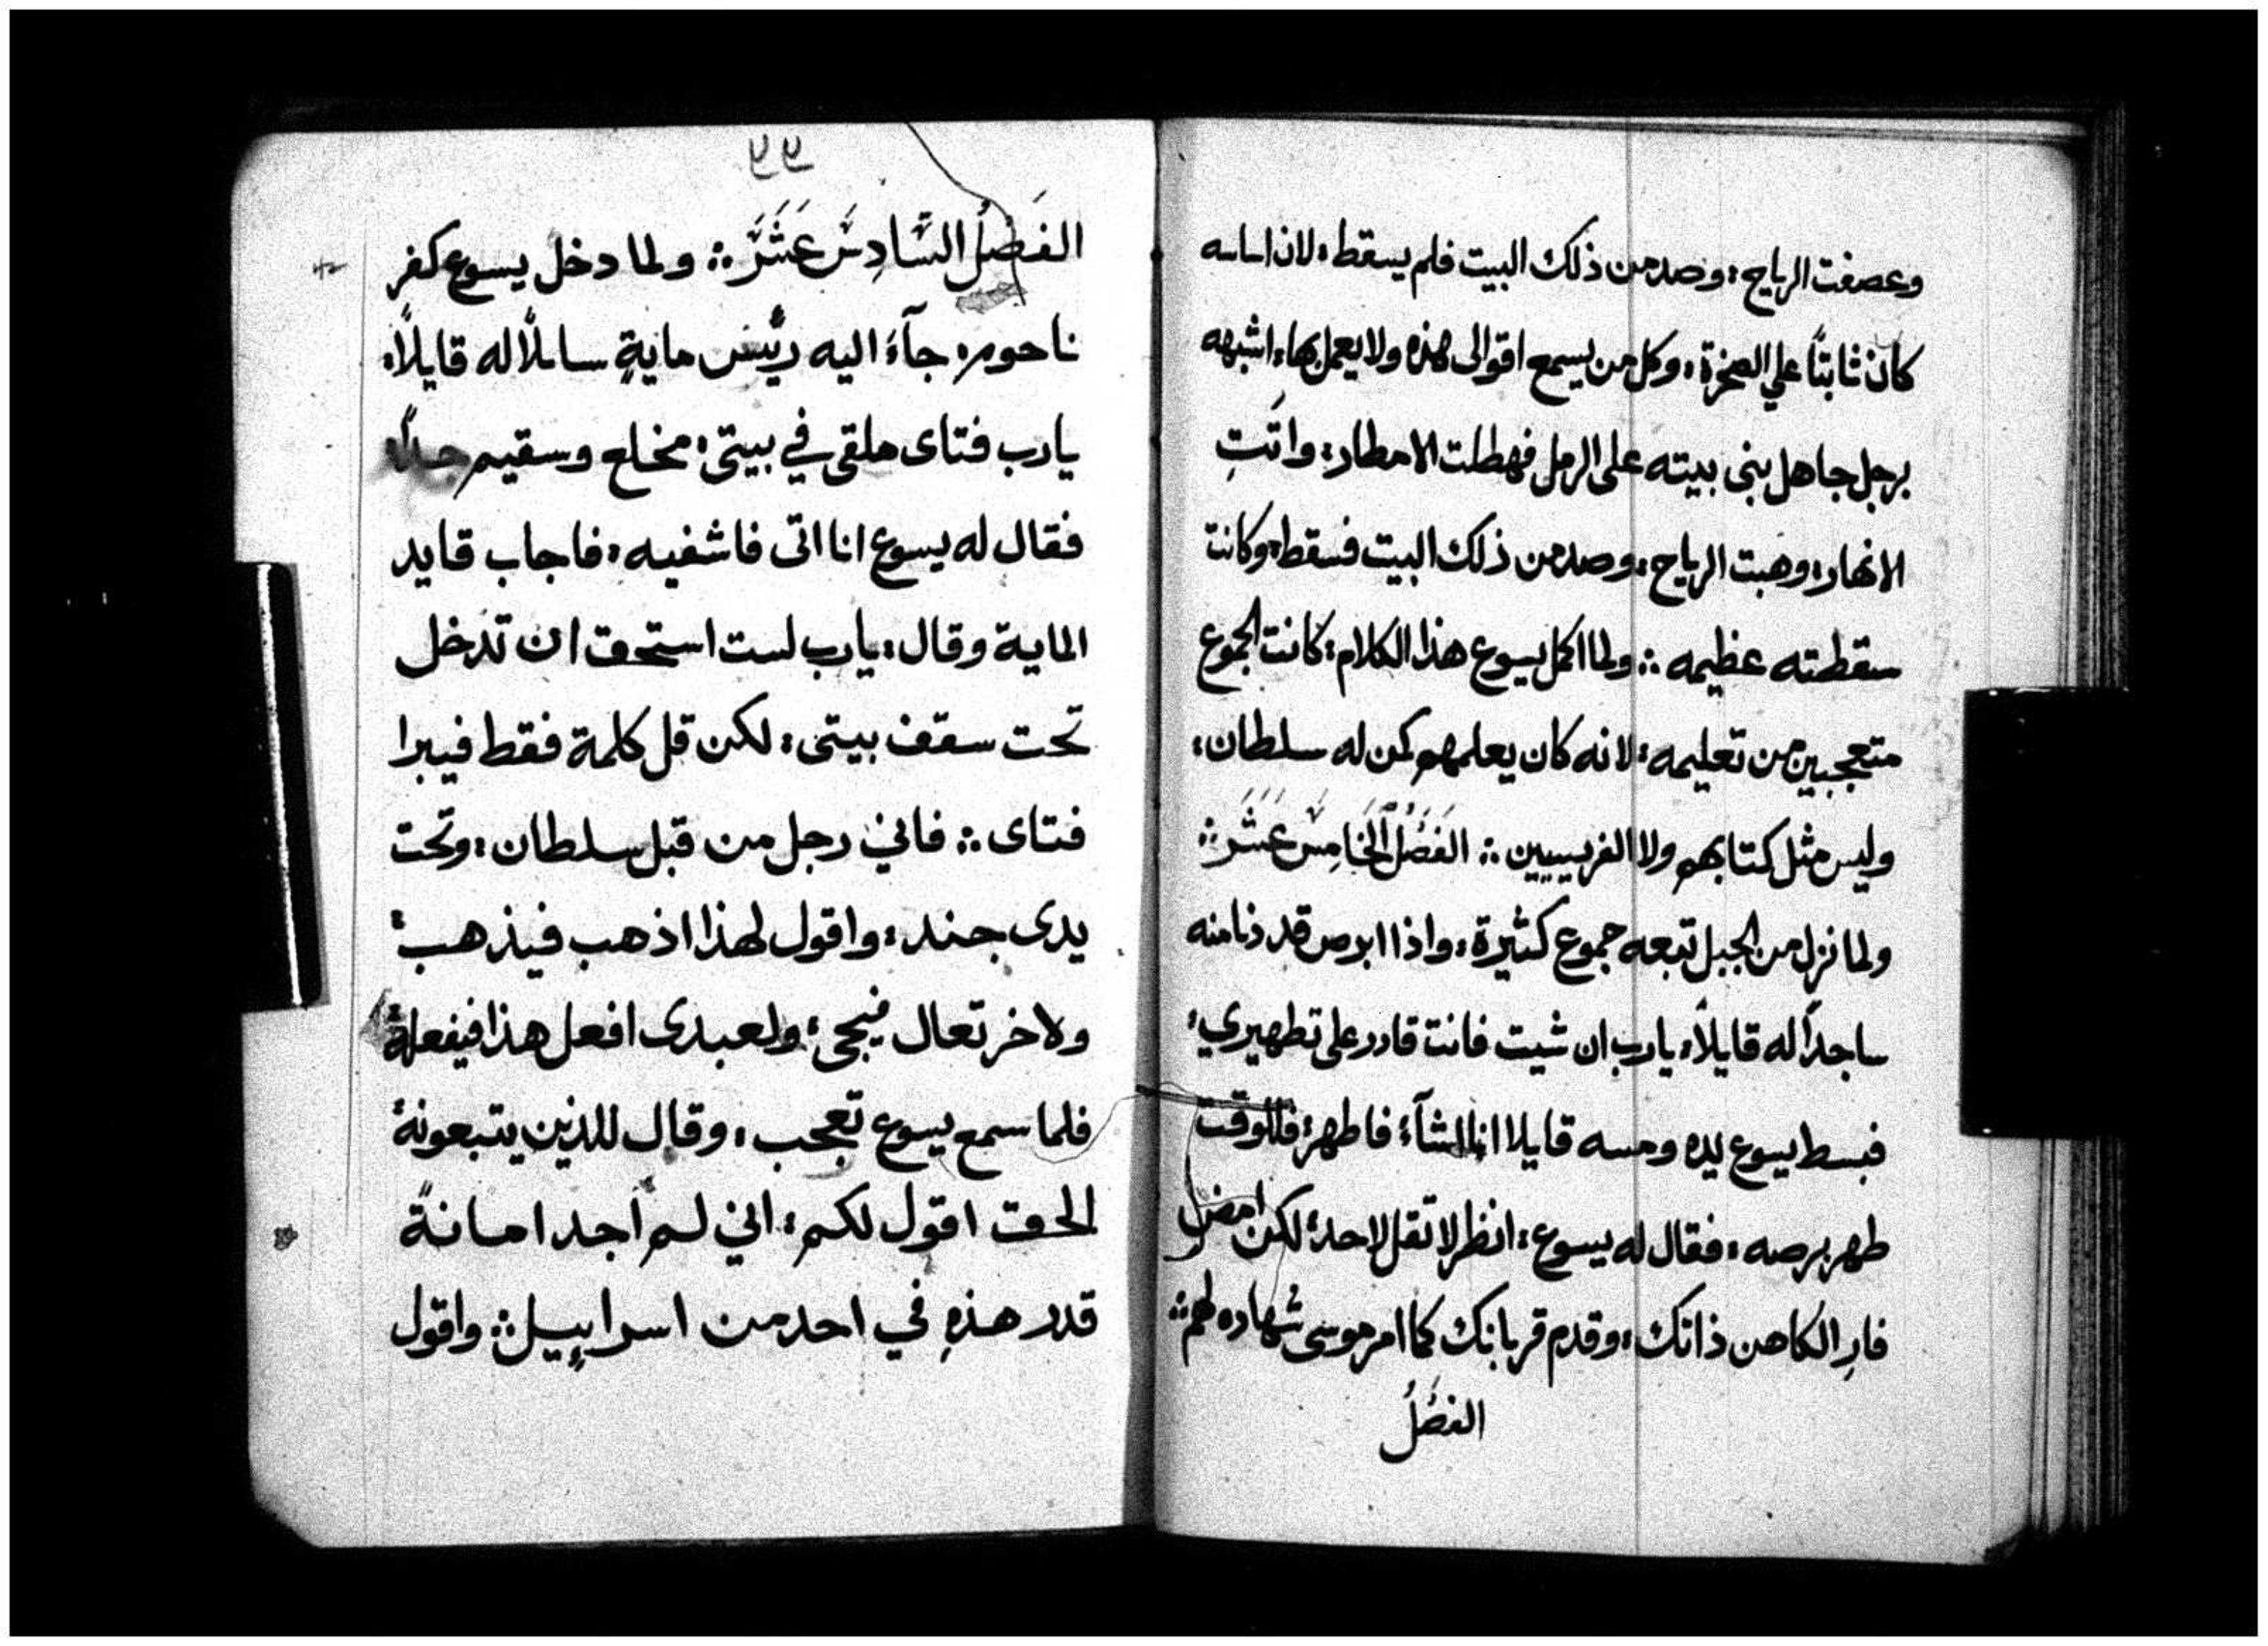 وعصفت الرياح: وصدمن ذلك البيت فلم يسقط: لان اساسه
كان ثابتًا علي الصخرة: وكل من يسمع اقوالى هذه ولا يعمل بها: اشبهه
برجل جاهل بنى بيته على الرمل فهطلت الامطار: واتتِ
الانهار: وهبت الرياح: وصدمن ذلك البيت فسقط: وكانت
سقطته عظيمه ؞ ولما اكمل يسوع هذا الكلام: كانت الجموع
متعجبين من تعليمه: لانه كان يعلمهم كمن له سلطان:
وليس مثل كتابهم ولا الفريسيين ؞ الفَصَلُ الخَامِسَ عَشَرَ ؞
ولما نزل من الجبل تبعه جموع كثيرة: واذا ابرص قد دنا منه
ساجدًا له قايلاً: يارب ان شيت فانت قادر على تطهيري:
فبسط يسوع يده ومسه قايلا انا اشآء: فاطهر: فللوقت
طهر برصه: فقال له يسوع: انظر لا تقل لاحد: لكن امض
فارِ الكاهن ذاتك: وقدم قربانك كما امر موسى شهاده لهم ؞
الفصَلُ
٧٧
الفَصَلُ السَّادِسَ عَشَرَ ؞ ولما دخل يسوع كفر
ناحوم: جآءَ اليه ريَّس مايةٍ سايلاً له قايلاً:
يارب فتاى ملقى في بيتى: مخلع وسقيم جدًا:
فقال له يسوع انا اتى فاشفيه: فاجاب قايد
الماية وقال: يارب لست استحق ان تدخل
تحت سقف بيتى: لكن قل كلمة فقط فيبرا
فتاى ؞ فاني رجل من قبل سلطان: وتحت
يدى جند: واقول لهذا اذهب فيذهب:
ولاخر تعال فيجى: ولعبدى افعل هذا فيفعلهُ
فلما سمع يسوع تعجب: وقال للذين يتبعونهُ
الحق اقول لكم: اني لم اجد امانةً
قدر هذهِ في احد من اسراييل ؞ واقول